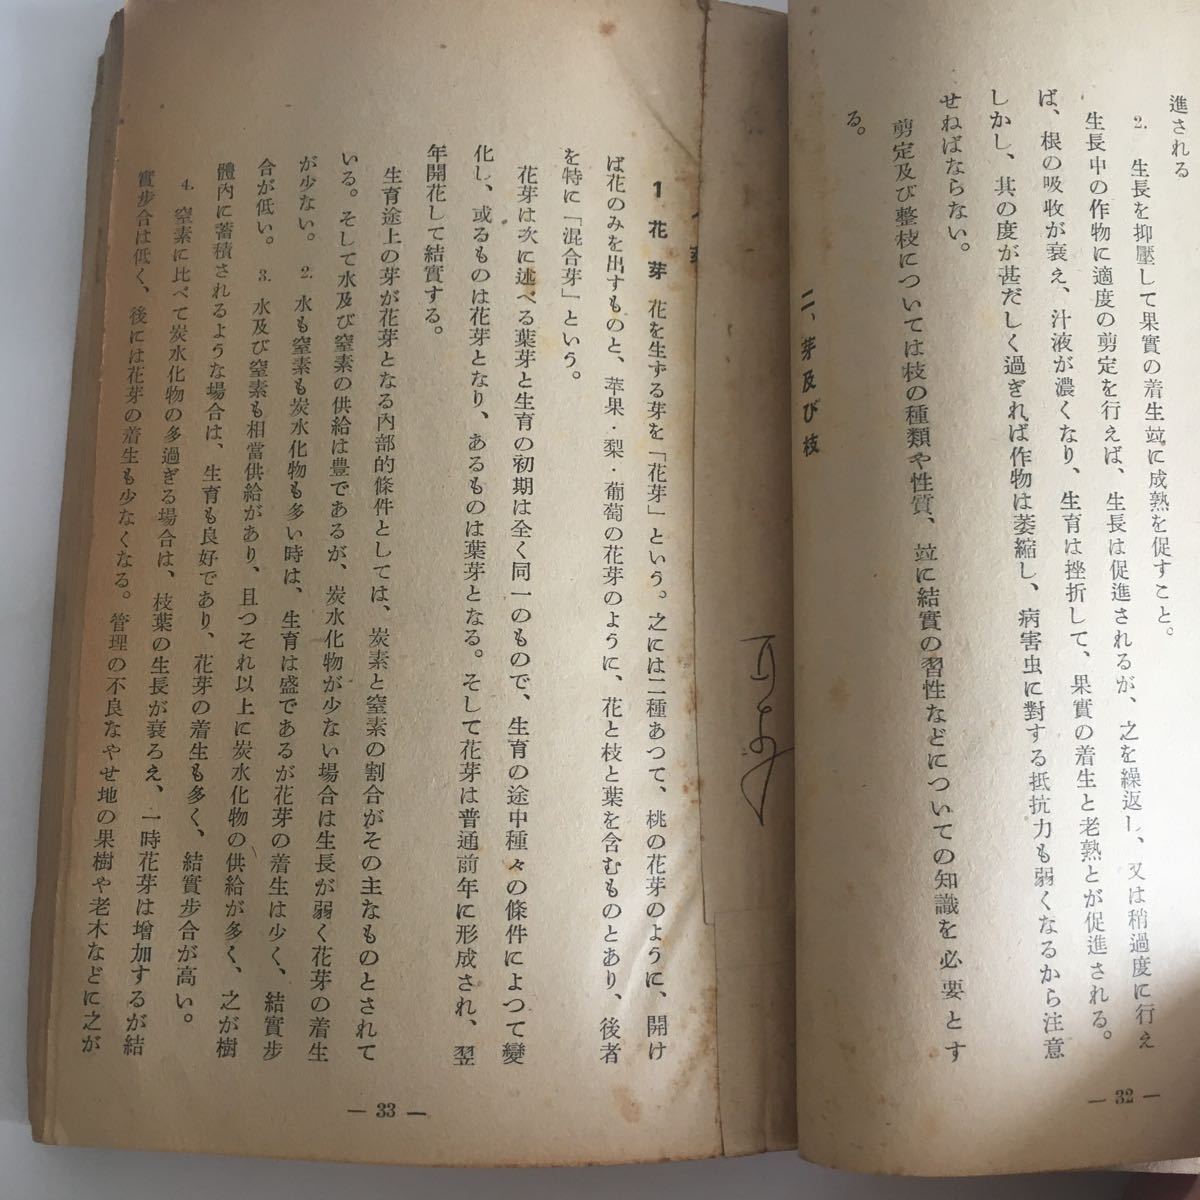 進される
2. 生長を抑壓して果實の着生竝に成熟を促すこと。
生長中の作物に適度の剪定を行えば、生長は促進されるが、之を繰返し、又は稍過度に行え
ば、根の吸收が衰え、汁液が濃くなり、生育は挫折して、果實の着生と老熟とが促進される。
しかし、其の度が甚だしく過ぎれば作物は萎縮し、病害虫に對する抵抗力も弱くなるから注意
せねばならない。
剪定及び整枝については枝の種類や性質、竝に結實の習性などについての知識を必要とす
る。
二、芽及び枝
— 32 —
1 花芽 花を生ずる芽を「花芽」という。之には二種あつて、桃の花芽のように、開け
ば花のみを出すものと、苹果・梨・葡萄の花芽のように、花と枝と葉を含むものとあり、後者
を特に「混合芽」という。
花芽は次に述べる葉芽と生育の初期は全く同一のもので、生育の途中種々の條件によつて變
化し、或るものは花芽となり、あるものは葉芽となる。そして花芽は普通前年に形成され、翌
年開花して結實する。
生育途上の芽が花芽となる內部的條件としては、炭素と窒素の割合がその主なものとされて
いる。そして水及び窒素の供給は豊であるが、炭水化物が少ない場合は生長が弱く花芽の着生
が少ない。 2. 水も窒素も炭水化物も多い時は、生育は盛であるが花芽の着生は少く、結實步
合が低い。 3. 水及び窒素も相當供給があり、且つそれ以上に炭水化物の供給が多く、之が樹
體內に蓄積されるような場合は、生育も良好であり、花芽の着生も多く、結實步合が高い。
4. 窒素に比べて炭水化物の多過ぎる場合は、枝葉の生長が衰ろえ、一時花芽は增加するが結
實步合は低く、後には花芽の着生も少なくなる。管理の不良なやせ地の果樹や老木などに之が
— 33 —